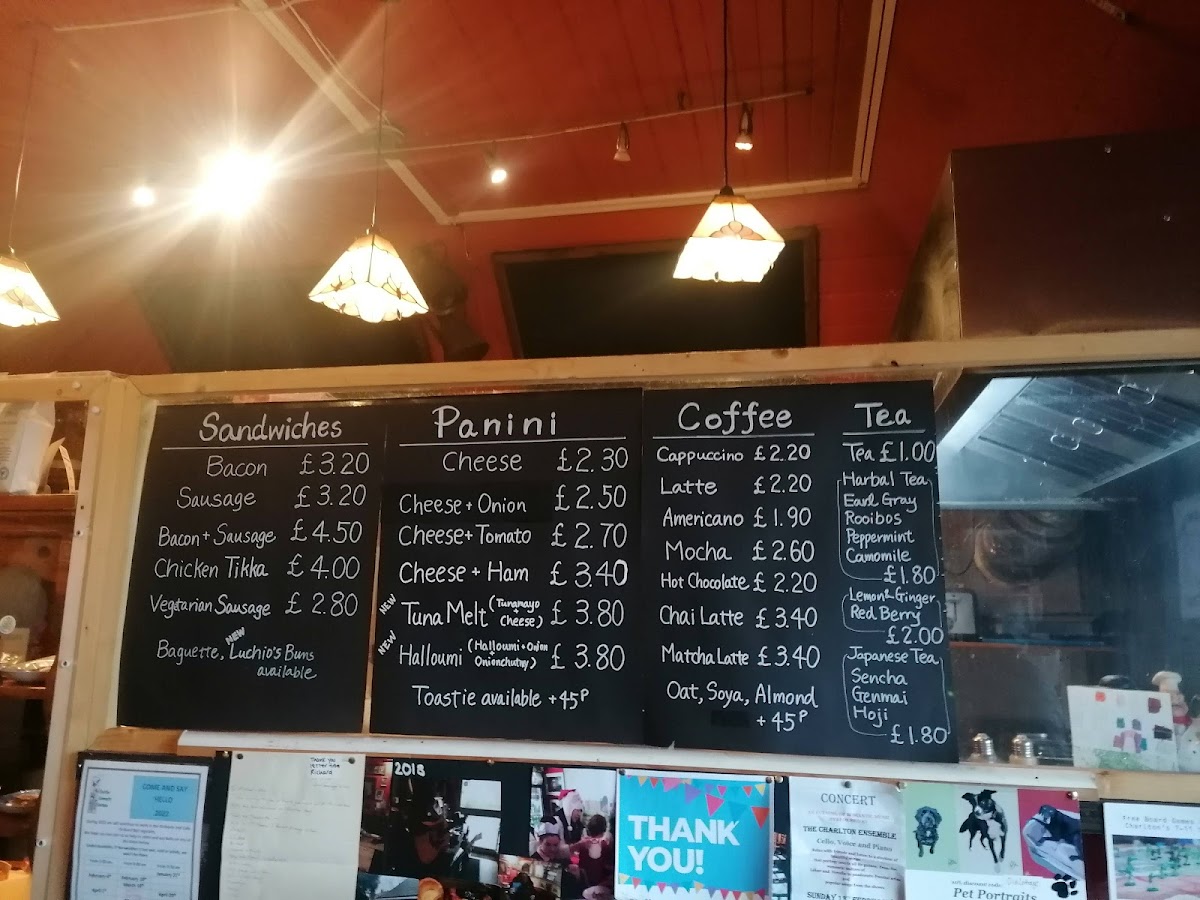 Sandwiches
Bacon £3.20
Sausage £3.20
Bacon + Sausage £4.50
Chicken Tikka £4.00
Vegetarian Sausage £2.80
NEW
Baguette, Luchio's Buns
available
Panini
Cheese £2.30
Cheese + Onion £2.50
Cheese + Tomato £2.70
Cheese + Ham £3.40
NEW Tuna Melt (Tunamayo + cheese) £3.80
NEW Halloumi (Halloumi + Onion Onionchutny) £3.80
Toastie available +45P
Coffee
Cappuccino £2.20
Latte £2.20
Americano £1.90
Mocha £2.60
Hot Chocolate £2.20
Chai Latte £3.40
Matcha Latte £3.40
Oat, Soya, Almond
+45P
Tea
Tea £1.00
Harbal Tea
Earl Gray
Rooibos
Peppermint
Camomile
£1.80
Lemon & Ginger
Red Berry
£2.00
Japanese Tea
Sencha
Genmai
Hoji
£1.80
COME AND SAY
HELLO
THANK YOU
Richard
2018
THANK
YOU!
CONCERT
THE CHARLTON ENSEMBLE
Cello, Voice and Piano
Pet Portraits